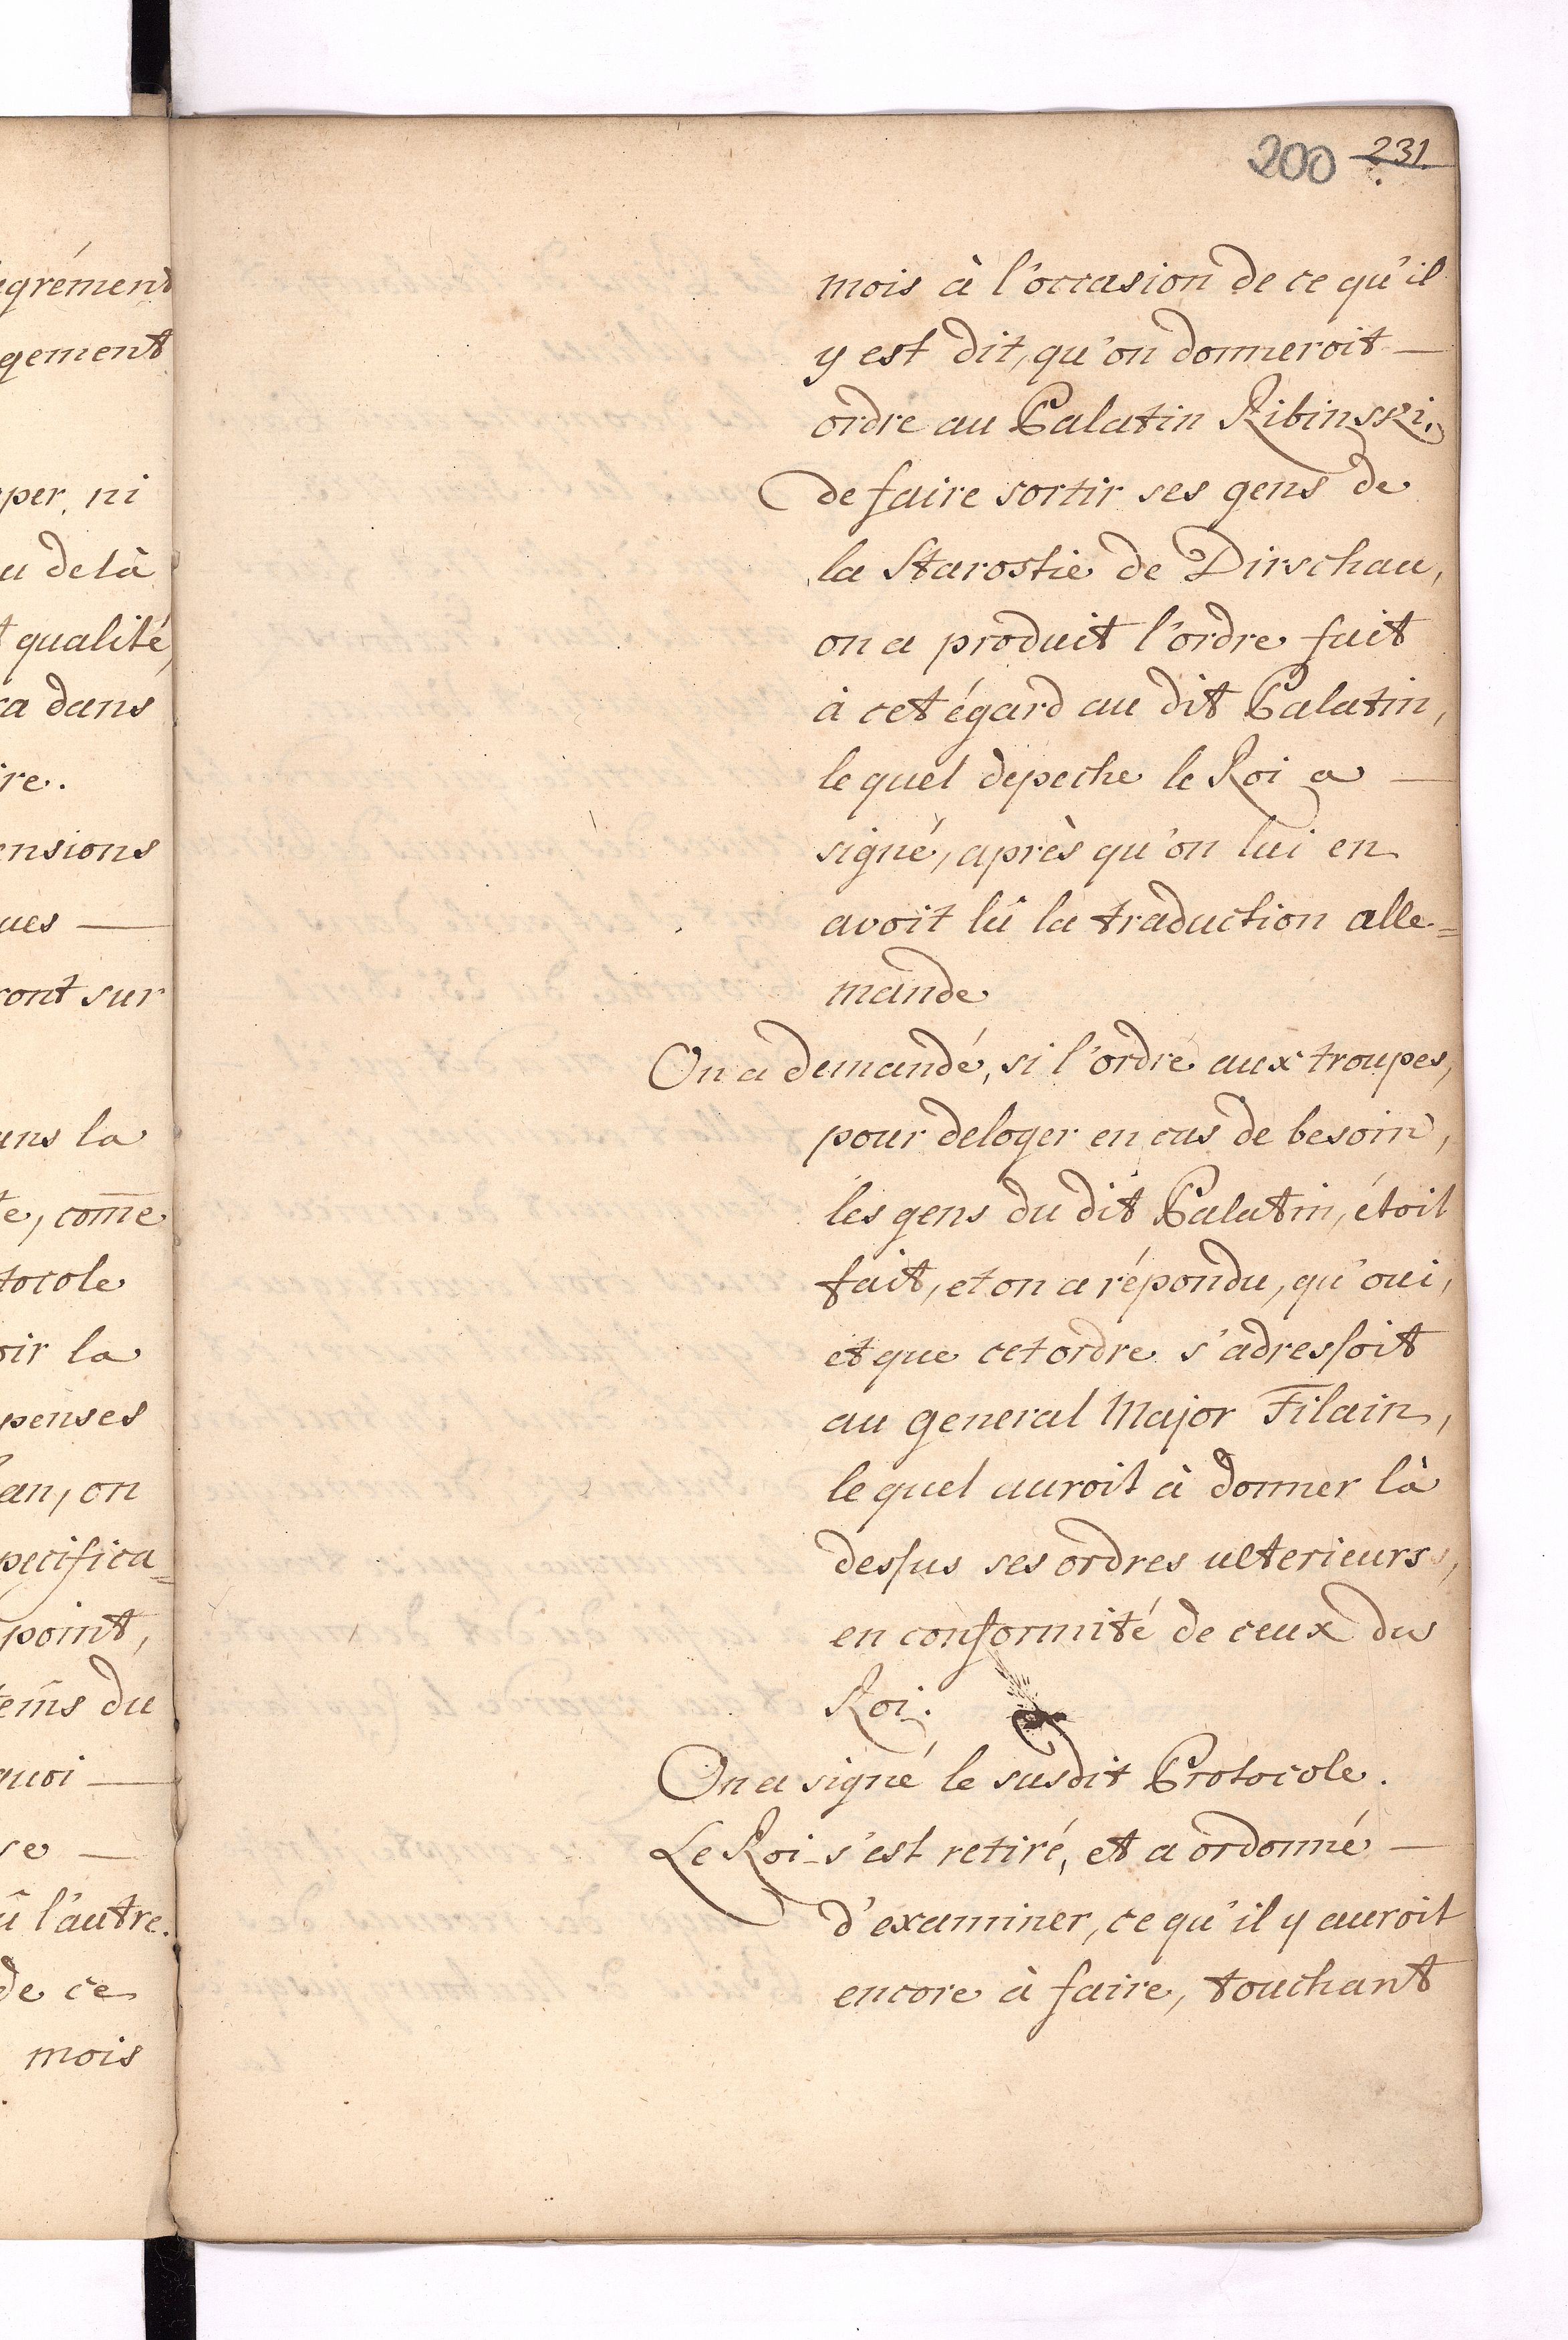 agrément
gement
per, ni
u delà
t qualité,
ra dans
ire.
ensions
ues —
ront sur
ans la
te, com̄e
tocole
oir la
penses
an, on
pecifica=
point,
tem̄s du
quoi —
se —
û l'autre.
de ce
mois
200 231.
mois à l'occasion de ce qu'il
y est dit, qu'on donneroit —
ordre au Palatin Ribinski,
de faire sortir ses gens de
la Starostie de Dirschau,
on a produit l'ordre fait
à cet égard au dit Palatin,
le quel depeche le Roi a —
signé, après qu'on lui en
avoit lû la traduction alle=
mande
On a demandé, si l'ordre aux troupes,
pour deloger en cas de besoin,
les gens du dit Palatin, étoit
fait, et on a répondu, qu'oui,
et que cet ordre s'adresſoit
au general Major Filain,
le quel auroit à donner là
desſus ses ordres ulterieurs,
en conformité de ceux du
Roi.
On a signé le susdit Protocole.
Le Roi s'est retiré, et a ordonné —
d'examiner, ce qu'il y auroit
encore à faire, touchant